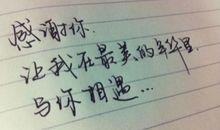 感谢你
让我在最美的年华里
与你相遇...